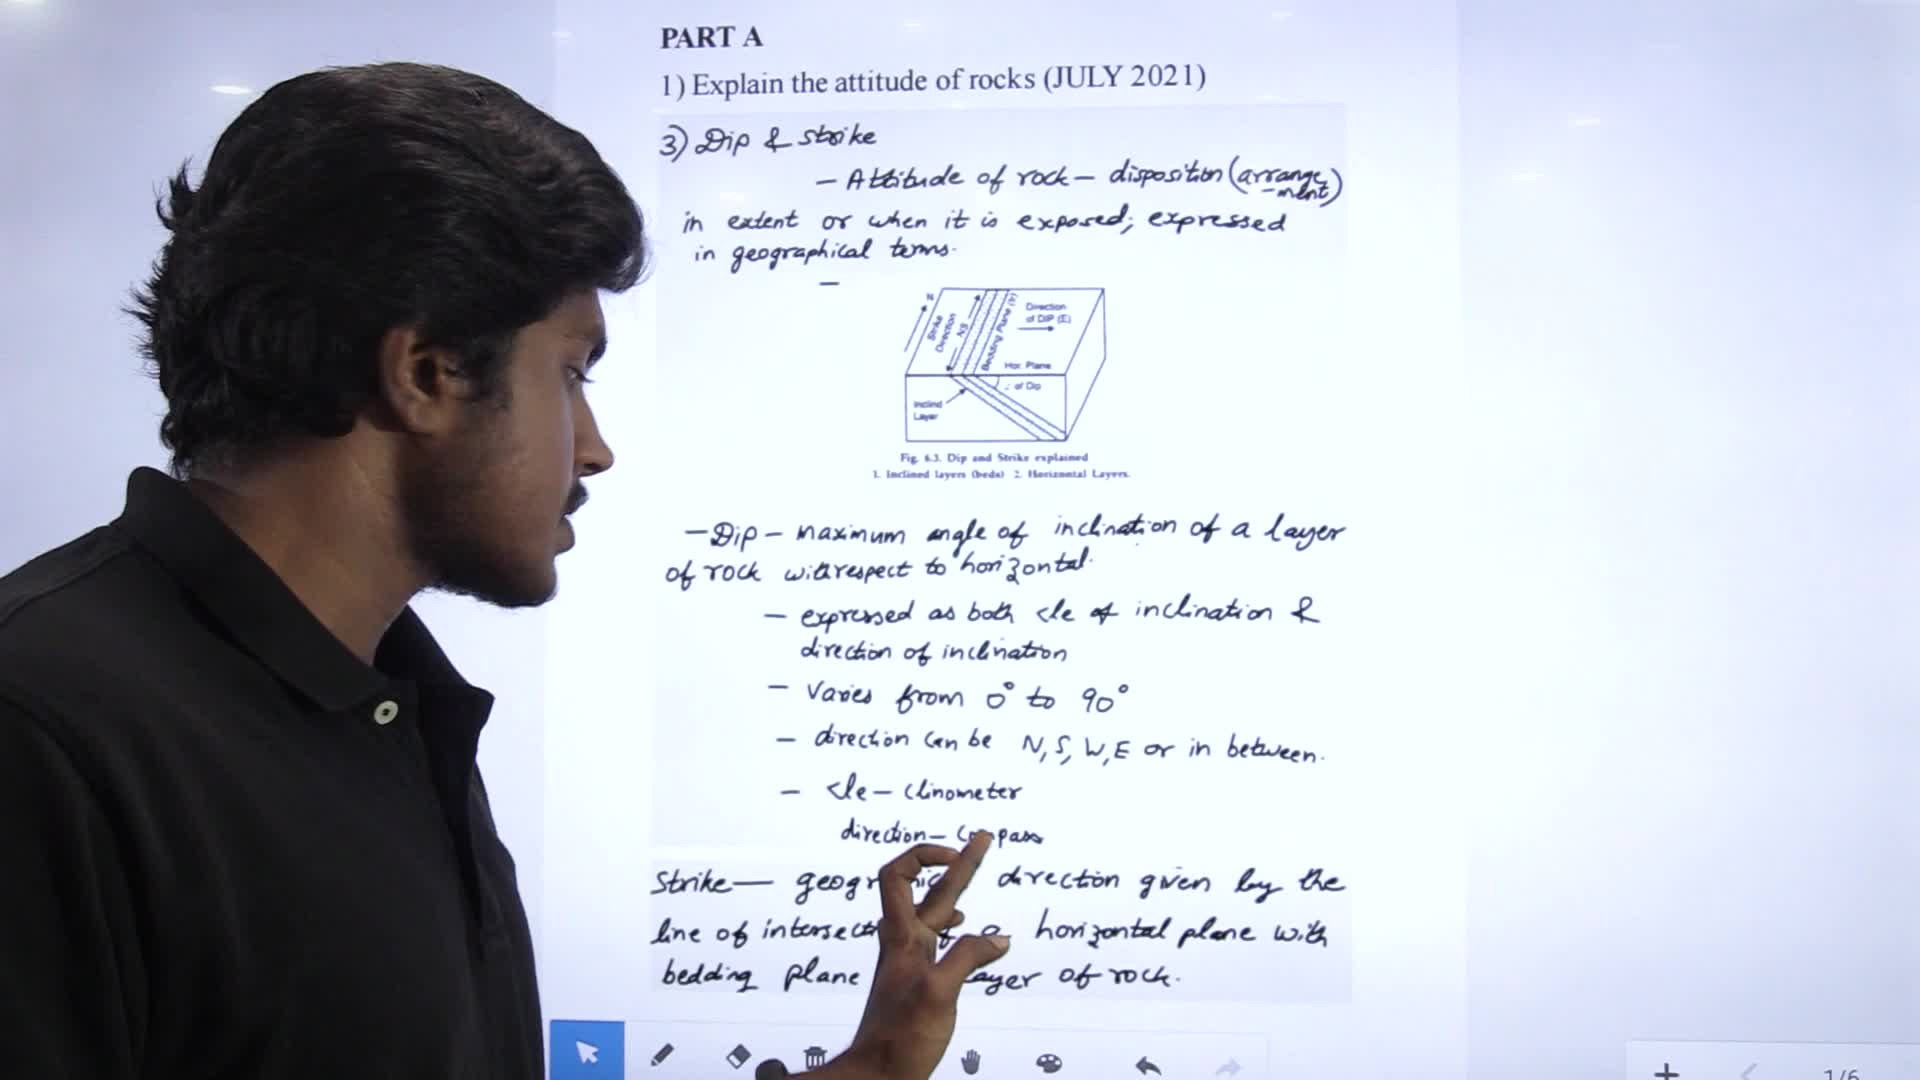 PART A
1) Explain the attitude of rocks (JULY 2021)
3) Dip & strike
– Attitude of rock – disposition (arrange
-ment)
in extent or when it is exposed; expressed
in geographical terms.
–
N
Strike
Direction
NS
Bedding Plane
Direction
of DIP (E)
Hor. Plane
of Dip
Inclind
Layer
Fig. 6.3. Dip and Strike explained
1. Inclined layers (beds) 2. Horizontal Layers.
– Dip – maximum angle of inclination of a layer
of rock with respect to horizontal.
– expressed as both <le of inclination &
direction of inclination
– Varies from 0° to 90°
– direction can be N, S, W, E or in between.
– <le – Clinometer
direction – Compass
Strike — direction given by the
line of a horizontal plane with
bedding plane layer of rock.
1/6